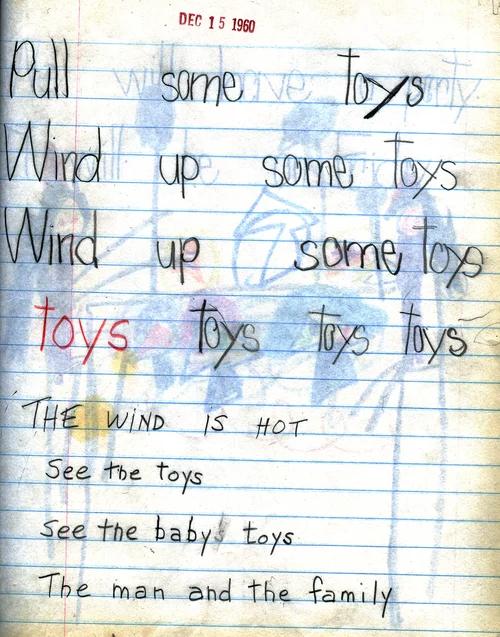 DEC 15 1960
Pull some toys
Wind up some toys
Wind up some toys
toys toys toys toys
THE WIND IS HOT
See the toys
See the baby toys
The man and the family